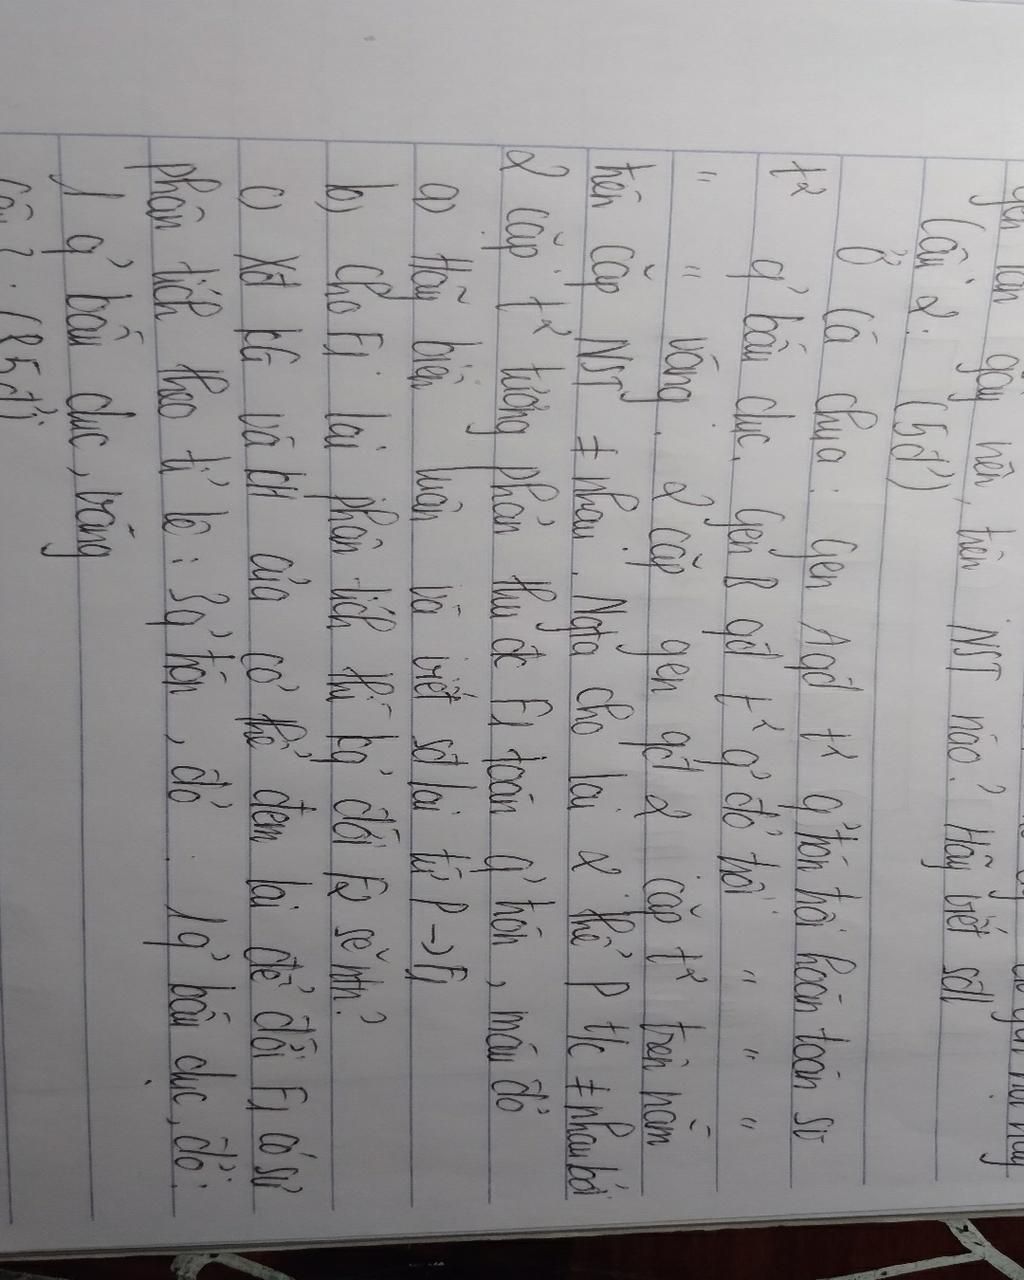 gen lần này nên, trên NST nào? Hãy viết sđl
Câu 2: (5đ)
Ở cà chua: gen A qđ t² q' tròn trội hoàn toàn so
t² q' bầu dục, gen B qđ t² q' đỏ trội " " "
" " vàng. 2 cặp gen qđ 2 cặp t² trên nằm
trên cặp NST ≠ nhau. Ngta cho lai 2 thể P t/c ≠ nhau bởi
2 cặp t² tương phản thu đc F1 toàn q' tròn, màu đỏ
a) Hãy biện luận và viết sơ lai từ P → F1
b) Cho F1 lai phân tích thì kq' đời F2 sẽ ntn?
c) Xđ KG và KH của cơ thể đem lai để đời F1 có sự
phân tích theo tỉ lệ: 3 q' tròn, đỏ. 1 q' bầu dục, đỏ:
1 q' bầu dục, vàng